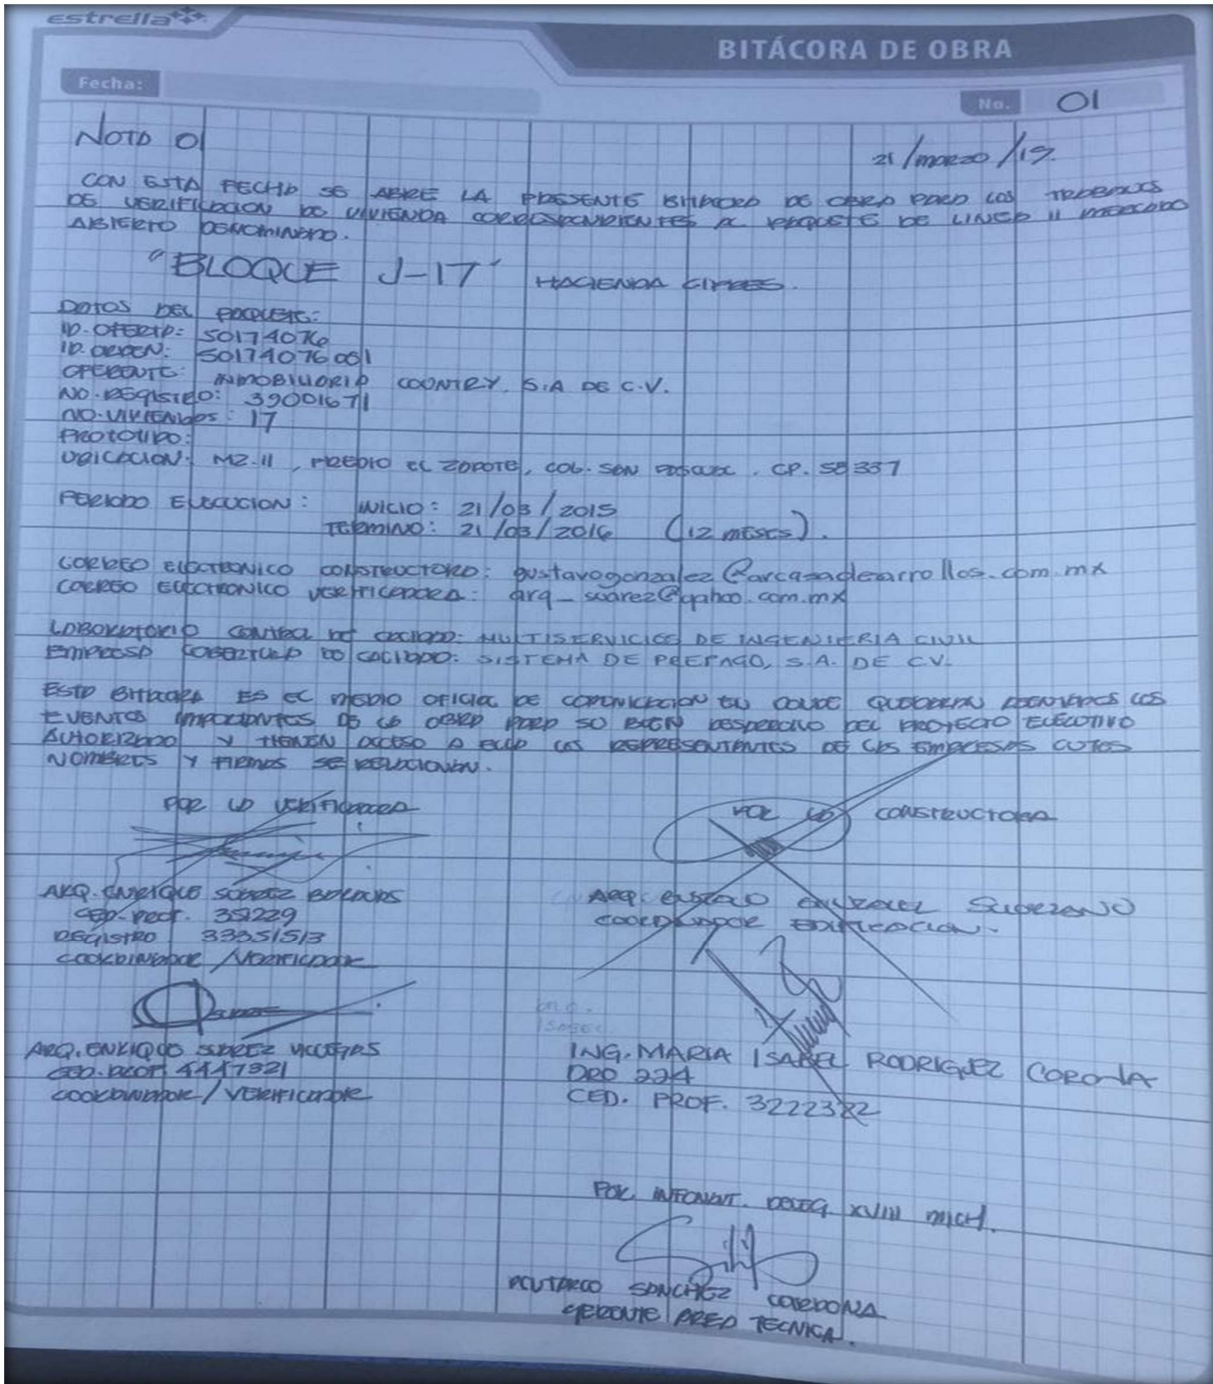 estrella
BITÁCORA DE OBRA
Fecha:
No. 01
NOTA 01
21/marzo/15.
CON ESTA FECHA SE ABRE LA PRESENTE BITACORA DE OBRA PARA LOS TRABAJOS
DE VERIFICACION DE VIVIENDA CORRESPONDIENTES A PAQUETE DE LINEA II MERCADO
ABIERTO DENOMINADO.
"BLOQUE J-17" HACIENDA
DATOS DEL PAQUETE:
ID. OFERTA: 50174076
ID. ORDEN: 50174076001
OFERENTE: INMOBILIARIA COUNTRY, S.A DE C.V.
NO. REGISTRO: 39001671
NO. VIVIENDAS: 17
PROTOTIPO:
UBICACION: MZ.11, PREDIO EL ZAPOTE, COL. SAN PASCUAL. CP. 58337
PERIODO EJECUCION: INICIO: 21/03/2015
TERMINO: 21/03/2016 (12 meses).
CORREO ELECTRONICO CONSTRUCTORA: gustavogonzalez@arcasadearrollos.com.mx
CORREO ELECTRONICO VERIFICADORA: arq_suarez@yahoo.com.mx
LABORATORIO CONTROL DE CALIDAD: MULTISERVICIOS DE INGENIERIA CIVIL
EMPRESA COBERTURA DE CALIDAD: SISTEMA DE PREPAGO, S.A. DE C.V.
ESTA BITACORA ES EL MEDIO OFICIAL DE COMUNICACION EN DONDE QUEDARAN ASENTADOS LOS
EVENTOS IMPORTANTES DE LA OBRA PARA SU BUEN DESARROLLO DEL PROYECTO EJECUTIVO
AUTORIZADO Y TIENEN ACCESO A ELLA LOS REPRESENTANTES DE LAS EMPRESAS CUYOS
NOMBRES Y FIRMAS SE RELACIONAN.
POR LA VERIFICADORA
POR LA CONSTRUCTORA
ARQ. ENRIQUE SUAREZ BOLAÑOS
CED. PROF. 351229
REGISTRO 33351513
COORDINADOR/VERIFICADOR
ARQ. GUSTAVO GONZALEZ
COORDINADOR EDIFICACION.
ARQ. ENRIQUE SUAREZ VILLEGAS
CED. PROF. 4447321
COORDINADOR/VERIFICADOR
ING.
ISABEL
ING. MARIA ISABEL RODRIGUEZ CORONA
DRO 224
CED. PROF. 3222382
POR INFONAVIT. DELEG. XVIII MICH.
PLUTARCO SANCHEZ CARDONA
GERENTE AREA TECNICA.